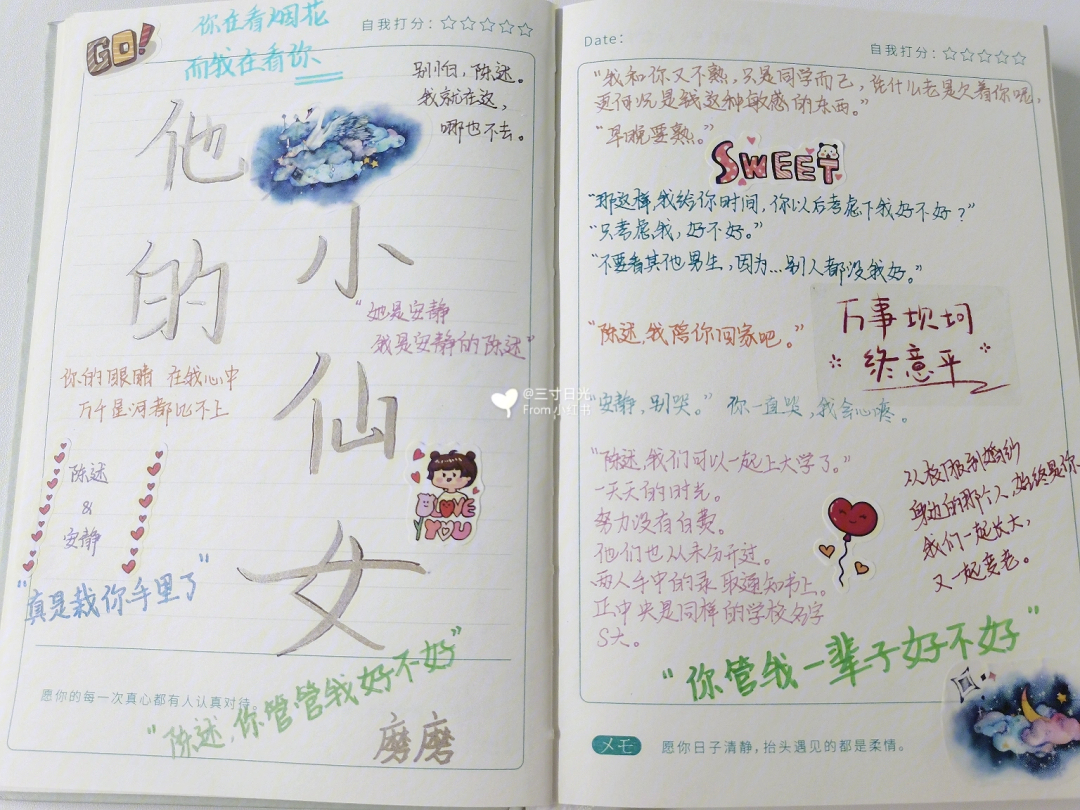 GO!
你在看烟花
而我在看你
自我打分：☆☆☆☆☆
别怕，陈述。
我就在这，
哪也不去。
他的
小仙女
“她是安静
我是安静的陈述”
你的眼睛 在我心中
万千星河都比不上
陈述
&
安静
I LOVE
YOU
“真是栽你手里了”
愿你的每一次真心都有人认真对待。
“陈述，你管管我好不好”
磨磨
@三寸日光
From 小红书
Date：
自我打分：☆☆☆☆☆
“我和你又不熟，只是同学而已，凭什么老是欠着你呢，
更何况是钱这种敏感的东西。”
“早晚要熟。”
SWEET
“那这样，我给你时间，你以后考虑下我好不好？”
“只考虑我，好不好。”
“不要看其他男生，因为…别人都没我好。”
“陈述，我陪你回家吧。”
万事坎坷
终意平
“安静，别哭。” 你一直哭，我会心疼。
“陈述，我们可以一起上大学了。”
一天天的时光。
努力没有白费。
他们也从未分开过。
两人手中的录取通知书上。
正中央是同样的学校名字
S大。
从校服到婚纱
身边的那个人，始终是你
我们一起长大，
又一起变老。
“你管我一辈子好不好”
メモ
愿你日子清静，抬头遇见的都是柔情。